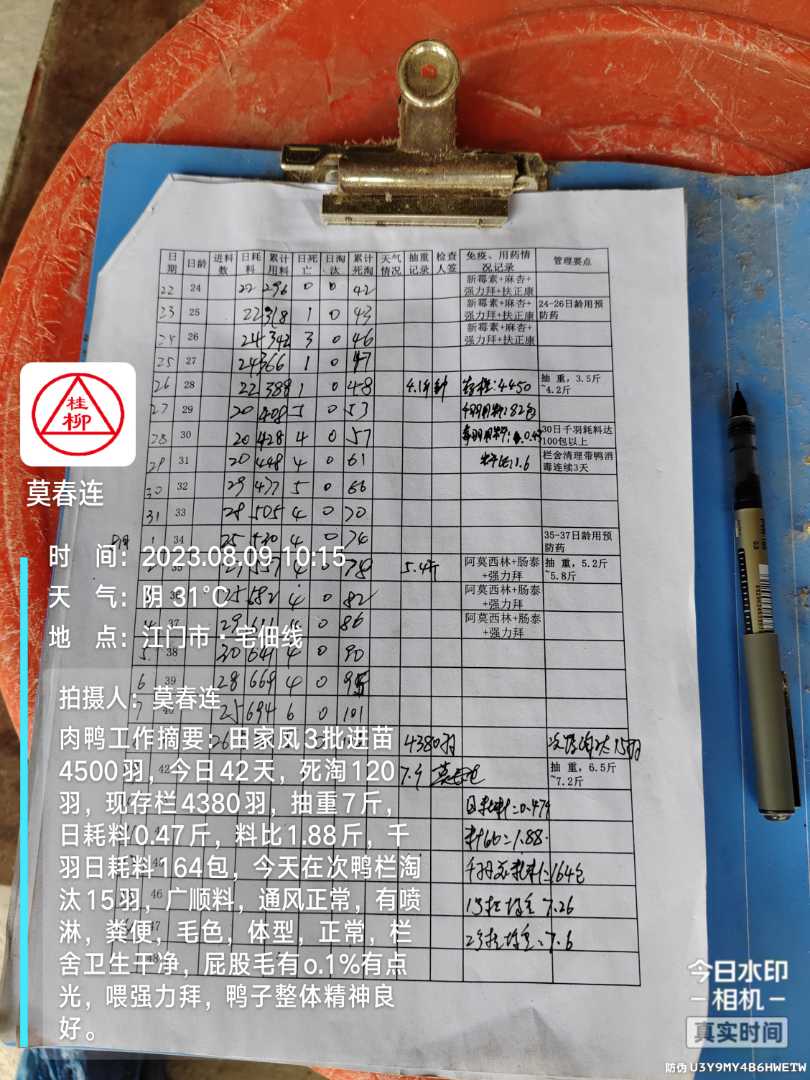 日期 日龄 进料数 日耗料 累计用料 日死亡 日淘汰 累计死淘 天气情况 抽重记录 检查人签 免疫、用药情况记录 管理要点
22 24 22 296 0 0 42 新霉素+麻杏+强力拜+扶正康
23 25 22 318 1 0 43 新霉素+麻杏+强力拜+扶正康 24-26日龄用预防药
24 26 24 342 3 0 46 新霉素+麻杏+强力拜+扶正康
25 27 24 366 1 0 47
26 28 22 388 1 0 48 存栏:4450 抽重,3.5斤~4.2斤
27 29 20 408 5 0 53
28 30 20 428 4 0 57 30日千羽耗料达100包以上
29 31 20 448 4 0 61 1.6 栏舍清理带鸭消毒连续3天
30 32 29 477 5 0 66
31 33 28 505 4 0 70
1 34 25 530 4 0 74 35-37日龄用预防药
35 4 0 78 5.4斤 阿莫西林+肠泰+强力拜 抽重,5.2斤~5.8斤
4 0 82 阿莫西林+肠泰+强力拜
29 4 0 86 阿莫西林+肠泰+强力拜
5 38 30 641 4 0 90
6 39 28 669 4 0 95
7 25 694 6 0 101
4380羽 15羽
42 抽重,6.5斤~7.2斤
料比=1.88
=164包
46 7.26
7.6
桂柳
莫春连
时 间:2023.08.09 10:15
天 气:阴 31℃
地 点:江门市·宅佃线
拍摄人:莫春连
肉鸭工作摘要:田家凤3批进苗
4500羽,今日42天,死淘120
羽,现存栏4380羽,抽重7斤,
日耗料0.47斤,料比1.88斤,千
羽日耗料164包,今天在次鸭栏淘
汰15羽,广顺料,通风正常,有喷
淋,粪便,毛色,体型,正常,栏
舍卫生干净,屁股毛有o.1%有点
光,喂强力拜,鸭子整体精神良
好。
今日水印
相机
真实时间
防伪 U3Y9MY4B6HWETW